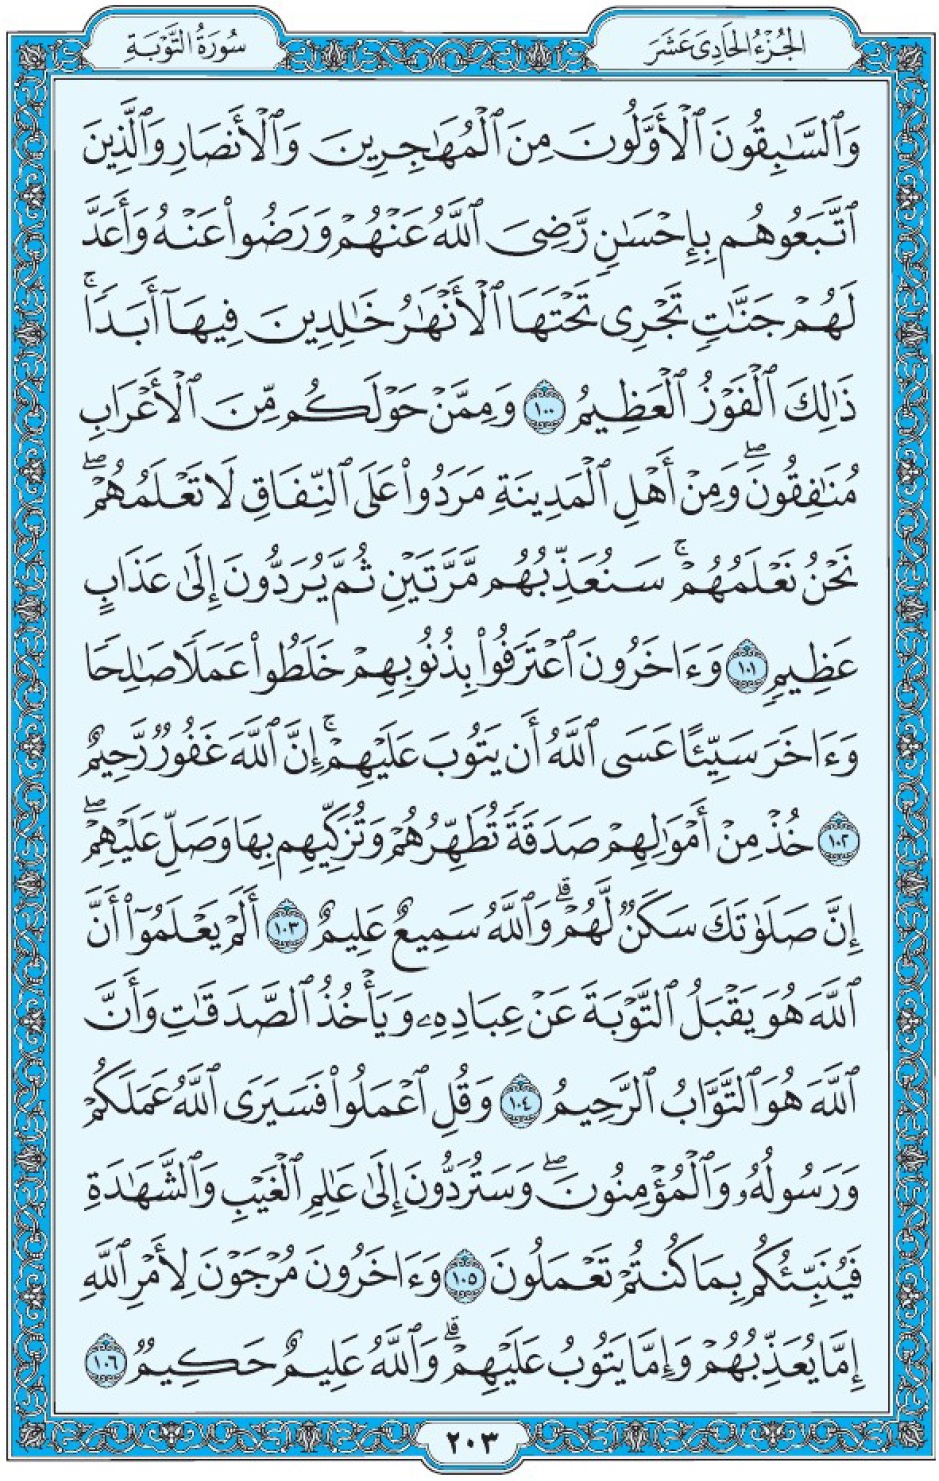 الجُزْءُ الحَادِىَ عَشَرَ
سُورَةُ التَّوۡبَةِ
وَٱلسَّٰبِقُونَ ٱلۡأَوَّلُونَ مِنَ ٱلۡمُهَٰجِرِينَ وَٱلۡأَنصَارِ وَٱلَّذِينَ
ٱتَّبَعُوهُم بِإِحۡسَٰنٖ رَّضِيَ ٱللَّهُ عَنۡهُمۡ وَرَضُواْ عَنۡهُ وَأَعَدَّ
لَهُمۡ جَنَّٰتٖ تَجۡرِي تَحۡتَهَا ٱلۡأَنۡهَٰرُ خَٰلِدِينَ فِيهَآ أَبَدٗاۚ
ذَٰلِكَ ٱلۡفَوۡزُ ٱلۡعَظِيمُ ١٠٠ وَمِمَّنۡ حَوۡلَكُم مِّنَ ٱلۡأَعۡرَابِ
مُنَٰفِقُونَۖ وَمِنۡ أَهۡلِ ٱلۡمَدِينَةِ مَرَدُواْ عَلَى ٱلنِّفَاقِ لَا تَعۡلَمُهُمۡۖ
نَحۡنُ نَعۡلَمُهُمۡۚ سَنُعَذِّبُهُم مَّرَّتَيۡنِ ثُمَّ يُرَدُّونَ إِلَىٰ عَذَابٍ
عَظِيمٖ ١٠١ وَءَاخَرُونَ ٱعۡتَرَفُواْ بِذُنُوبِهِمۡ خَلَطُواْ عَمَلٗا صَٰلِحٗا
وَءَاخَرَ سَيِّئًا عَسَى ٱللَّهُ أَن يَتُوبَ عَلَيۡهِمۡۚ إِنَّ ٱللَّهَ غَفُورٞ رَّحِيمٌ
١٠٢ خُذۡ مِنۡ أَمۡوَٰلِهِمۡ صَدَقَةٗ تُطَهِّرُهُمۡ وَتُزَكِّيهِم بِهَا وَصَلِّ عَلَيۡهِمۡۖ
إِنَّ صَلَوٰتَكَ سَكَنٞ لَّهُمۡۗ وَٱللَّهُ سَمِيعٌ عَلِيمٌ ١٠٣ أَلَمۡ يَعۡلَمُوٓاْ أَنَّ
ٱللَّهَ هُوَ يَقۡبَلُ ٱلتَّوۡبَةَ عَنۡ عِبَادِهِۦ وَيَأۡخُذُ ٱلصَّدَقَٰتِ وَأَنَّ
ٱللَّهَ هُوَ ٱلتَّوَّابُ ٱلرَّحِيمُ ١٠٤ وَقُلِ ٱعۡمَلُواْ فَسَيَرَى ٱللَّهُ عَمَلَكُمۡ
وَرَسُولُهُۥ وَٱلۡمُؤۡمِنُونَۖ وَسَتُرَدُّونَ إِلَىٰ عَٰلِمِ ٱلۡغَيۡبِ وَٱلشَّهَٰدَةِ
فَيُنَبِّئُكُم بِمَا كُنتُمۡ تَعۡمَلُونَ ١٠٥ وَءَاخَرُونَ مُرۡجَوۡنَ لِأَمۡرِ ٱللَّهِ
إِمَّا يُعَذِّبُهُمۡ وَإِمَّا يَتُوبُ عَلَيۡهِمۡۗ وَٱللَّهُ عَلِيمٌ حَكِيمٞ ١٠٦
٢٠٣